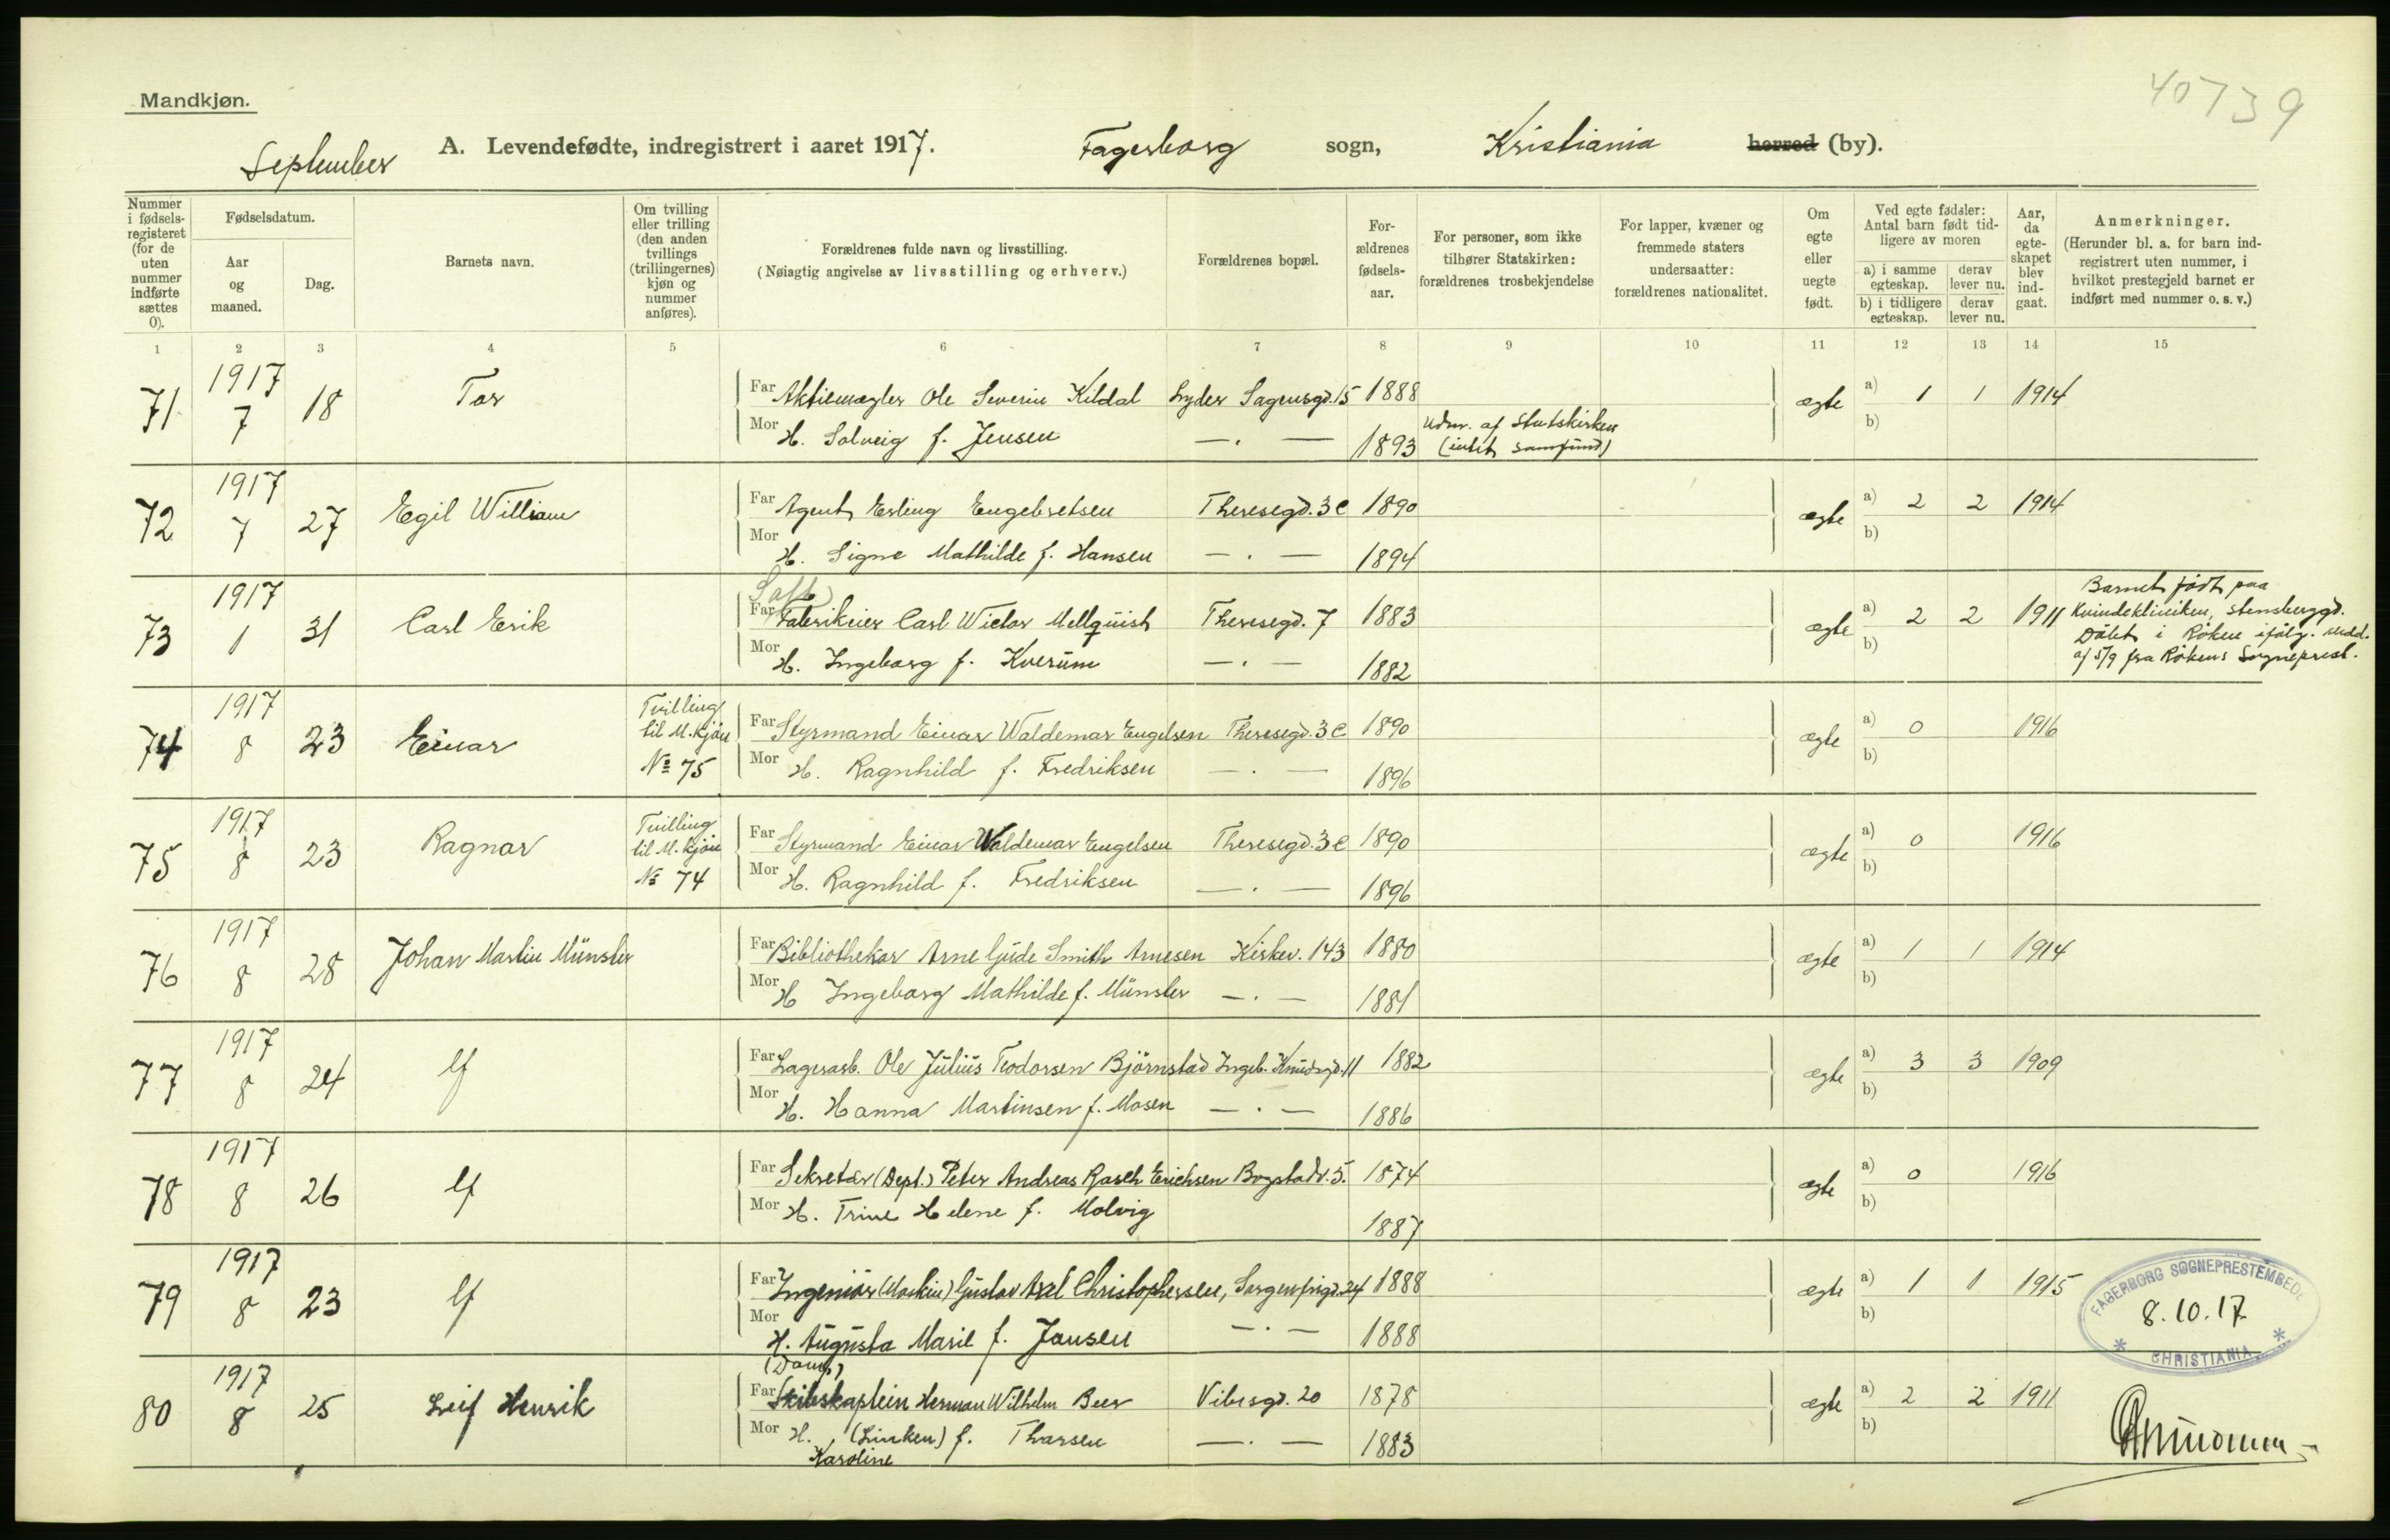 40739
Mandkjøn.
September A. Levendefødte, indregistrert i aaret 1917. Fagerborg sogn, Kristiania herred (by).
Nummer i fødsels-registeret (for de uten nummer indførte sættes 0).
Fødselsdatum.
Aar og maaned.
Dag.
Barnets navn.
Om tvilling eller trilling (den anden tvillings (trillingernes) kjøn og nummer anføres).
Forældrenes fulde navn og livsstilling.
(Nøiagtig angivelse av livsstilling og erhverv.)
Forældrenes bopæl.
For-ældrenes fødsels-aar.
For personer, som ikke tilhører Statskirken: forældrenes trosbekjendelse
For lapper, kvæner og fremmede staters undersaatter: forældrenes nationalitet.
Om egte eller uegte født.
Ved egte fødsler: Antal barn født tid-ligere av moren
a) i samme egteskap. derav lever nu.
b) i tidligere egteskap. derav lever nu.
Aar, da egte-skapet blev ind-gaat.
Anmerkninger.
(Herunder bl. a. for barn ind-registrert uten nummer, i hvilket prestegjeld barnet er indført med nummer o. s. v.)
1 2 3 4 5 6 7 8 9 10 11 12 13 14 15
71 1917 7 18 Tor Far Aktiemægler Ole Severin Kildal Lyder Sagensgd. 15 1888 ægte a) 1 1 1914
Mor H. Solveig f. Jensen — . — 1893 Udm. af Statskirken (intet samfund) b)
72 1917 7 27 Egil William Far Agent Erling Engebretsen Theresegd. 3c 1890 ægte a) 2 2 1914
Mor H. Signe Mathilde f. Hansen — . — 1894 b)
73 1917 1 31 Carl Erik (Saft) Far Fabrikeier Carl Victor Mellquist Theresegd. 7 1883 ægte a) 2 2 1911
Mor H. Ingeborg f. Kverum — . — 1882 b)
Barnet født paa
Kvindekliniken, Stensberggd.
Döbt i Röken ifölg. medd.
af 5/9 fra Rökens Sogneprest.
74 1917 8 23 Einar Tvilling til M.kjön No 75 Far Styrmand Einar Waldemar Engelsen Theresegd. 3c 1890 ægte a) 0 1916
Mor H. Ragnhild f. Fredriksen — . — 1896 b)
75 1917 8 23 Ragnar Tvilling til M.kjön No 74 Far Styrmand Einar Waldemar Engelsen Theresegd. 3c 1890 ægte a) 0 1916
Mor H. Ragnhild f. Fredriksen — . — 1896 b)
76 1917 8 28 Johan Martin Münster Far Bibliothekar Arne Gude Smith Arnesen Kirkev. 143 1880 ægte a) 1 1 1914
Mor H Ingeborg Mathilde f. Münster — . — 1881 b)
77 1917 8 24 Far Lagerarb. Ole Julius Teodorsen Björnstad Ingeb. Knudsgd. 11 1882 ægte a) 3 3 1909
Mor H. Hanna Martinsen f. Mosen — . — 1886 b)
78 1917 8 26 Far Sekretær (Dept.) Peter Andreas Rasch Erichsen Bogstadv. 5. 1874 ægte a) 0 1916
Mor H. Trine Helene f. Molvig 1887 b)
79 1917 8 23 Far Ingeniör (Maskin) Gustav Axel Christophersen, Sorgenfrigd. 24 1888 ægte a) 1 1 1915
Mor H. Augusta Marie f. Jansen — . — 1888 b)
FAGERBORG SOGNEPRESTEMBEDE
8.10.17
* CHRISTIANIA *
80 1917 8 25 Leif Henrik (Damp) Far Skibskaptein Herman Wilhelm Beer Vibesgd. 20 1878 ægte a) 2 2 1911
Mor H. (Linken) f. Thorsen — . — 1883 b)
Karoline